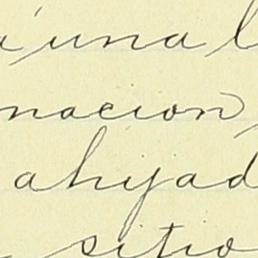 a una l
nacion,
ahijad
sitio